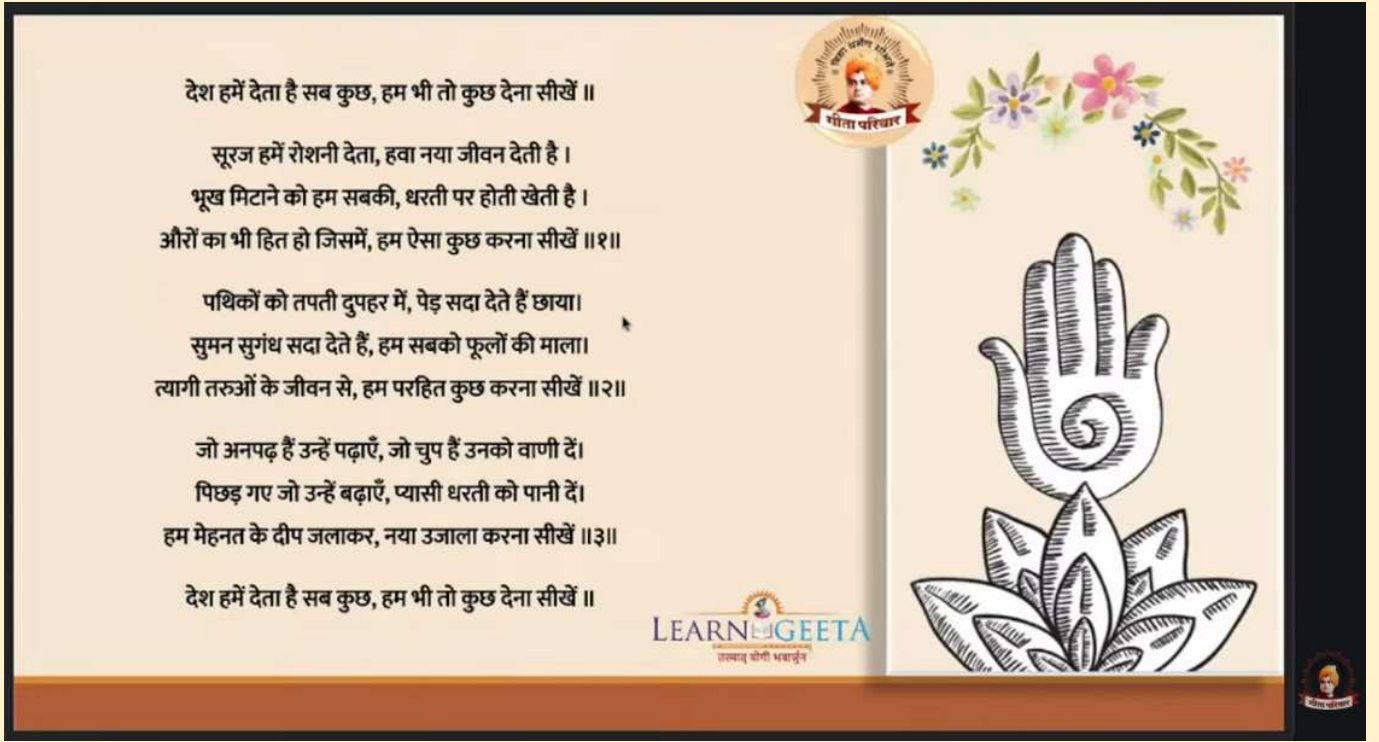 देश हमें देता है सब कुछ, हम भी तो कुछ देना सीखें ॥
सूरज हमें रोशनी देता, हवा नया जीवन देती है ।
भूख मिटाने को हम सबकी, धरती पर होती खेती है ।
औरों का भी हित हो जिसमें, हम ऐसा कुछ करना सीखें ॥१॥
पथिकों को तपती दुपहर में, पेड़ सदा देते हैं छाया।
सुमन सुगंध सदा देते हैं, हम सबको फूलों की माला।
त्यागी तरुओं के जीवन से, हम परहित कुछ करना सीखें ॥२॥
जो अनपढ़ हैं उन्हें पढ़ाएँ, जो चुप हैं उनको वाणी दें।
पिछड़ गए जो उन्हें बढ़ाएँ, प्यासी धरती को पानी दें।
हम मेहनत के दीप जलाकर, नया उजाला करना सीखें ॥३॥
देश हमें देता है सब कुछ, हम भी तो कुछ देना सीखें ॥
गीता परिवार
LEARN GEETA
तस्मात् योगी भवार्जुन
गीता परिवार